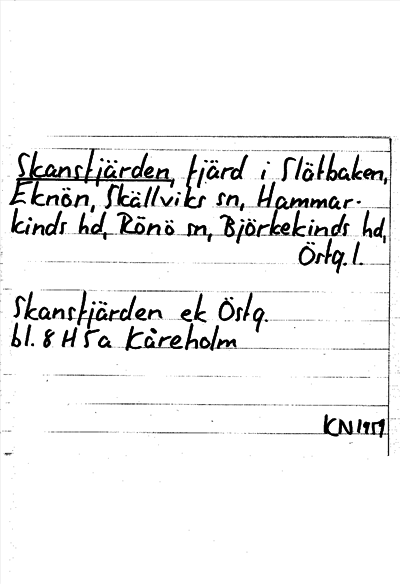 Skansfjärden, fjärd i Slätbaken,
Eknön, Skällviks sn, Hammar-
kinds hd, Rönö sn, Björkekinds hd,
Östg. l.
Skansfjärden ek Östg.
bl. 8 H 5a Kåreholm
KN